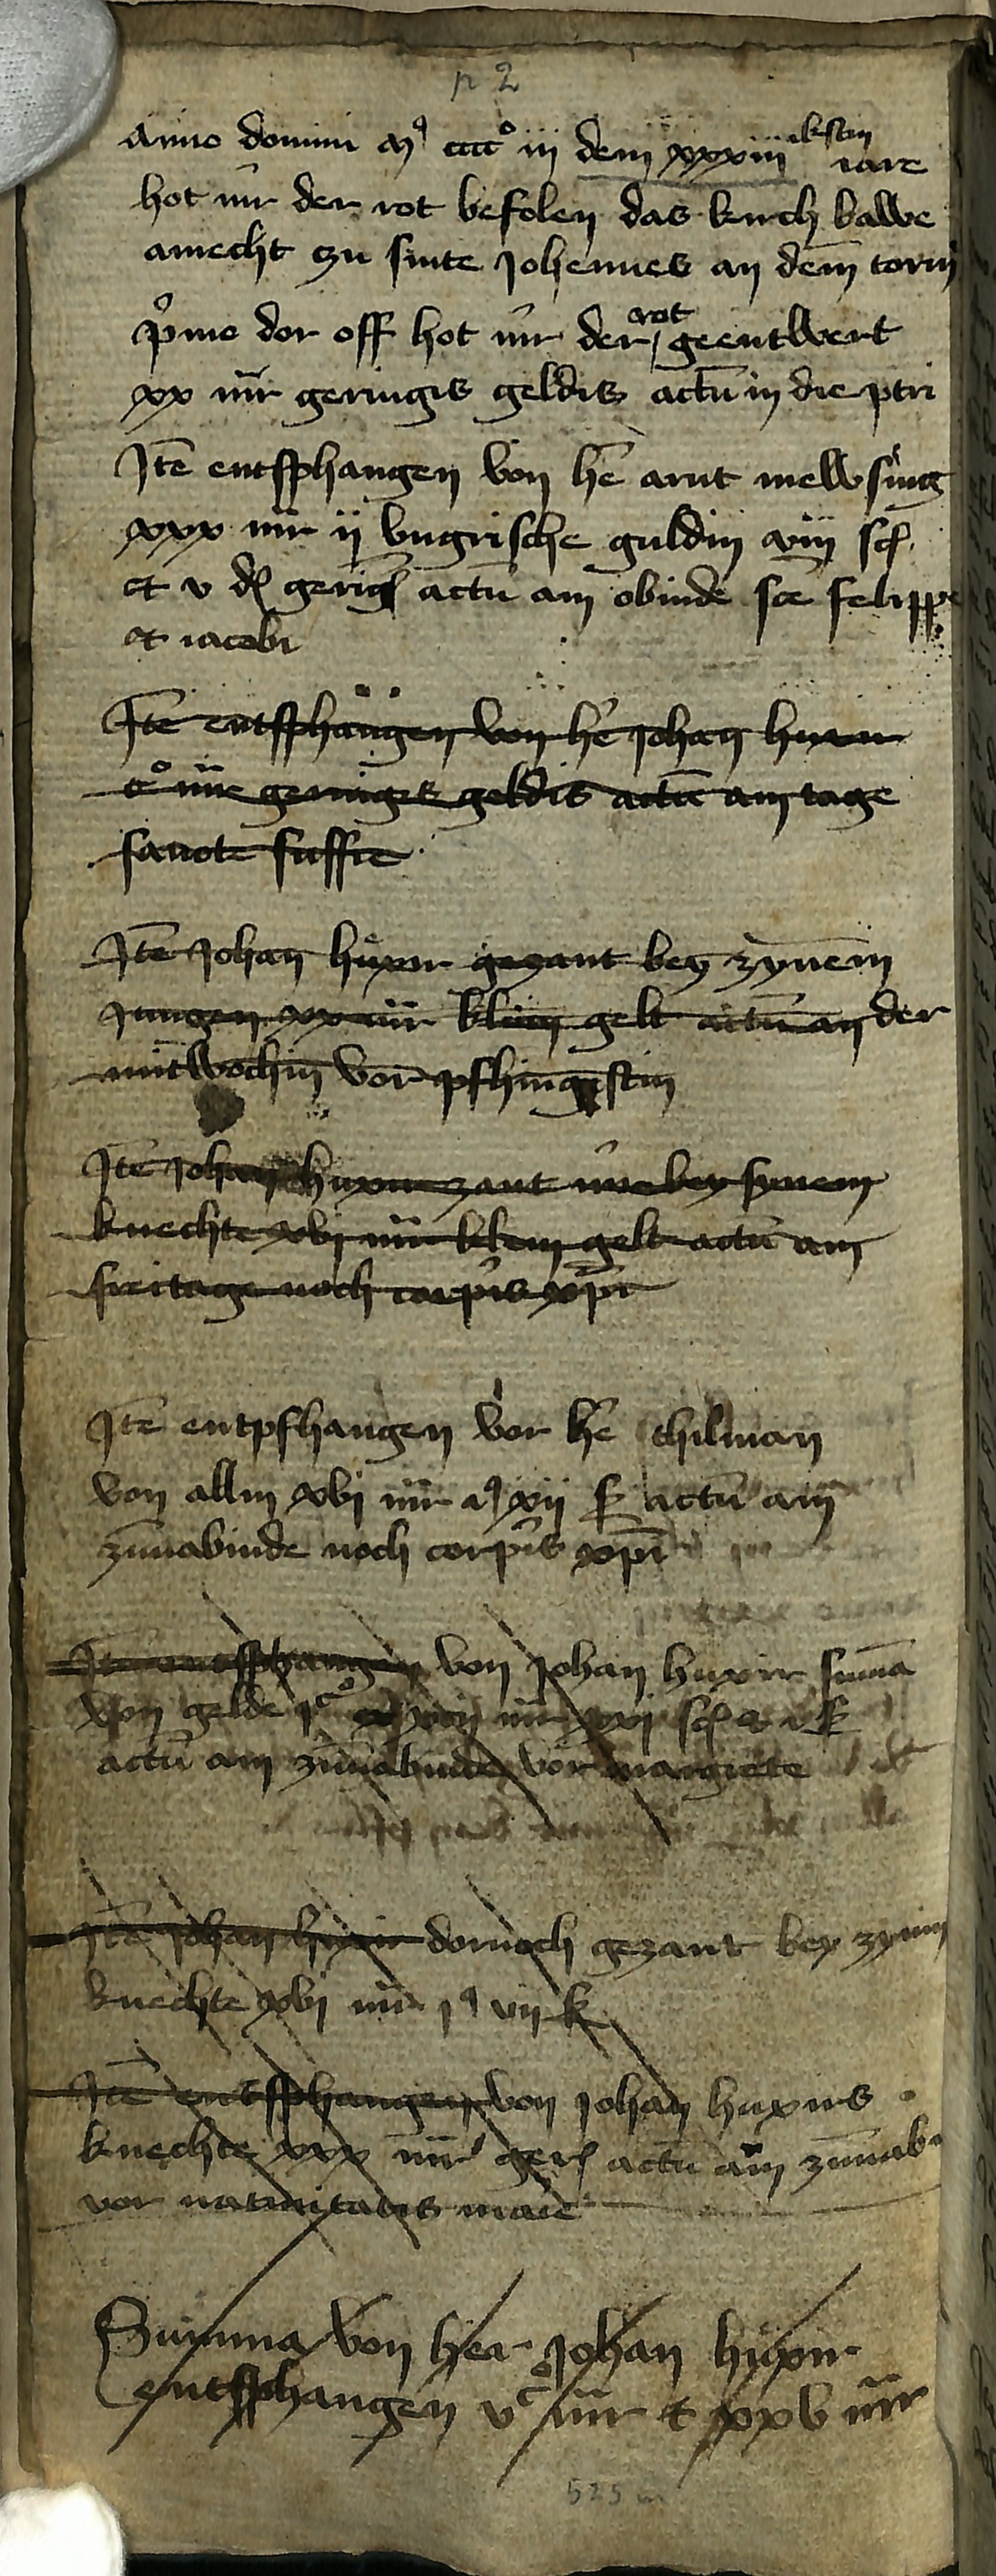 p 2
Anno domini mͦ ccccͦ in dem xxxiii ikstin iare
hot mir der rot befolen das kirch bawe
amecht zu sinte Johannes an dem torm
pͥmo dor off hot mir der rot geentwert
xx mr geringis geldis actū in die petri
Itē entfphangen von hē arnt mewsing
xxx mr ii vngrische guldin viii sc̨
et v d̨ gering̨ actū am obinde sce felippe
et iacobi
Itē entfphangen von hē Johan huxer
cͦ mr geringes geldis actū am tage
sancte suffie
Itē Johan huxer gezant bey zynem
Jungen xx mr klein gelt actū an der
mitwochin vor pfhingestin
Itē Johan huxer zant mir bey synem
knechte xvi mr klein gelt actū am
freitage noch corpis xpī
Itē entpfhangen vor hē thilman
von allin xvi mr xii actū am
zunabinde noch corpis xpī
Itē entfphangen von Johan huxer summa
von gelde mr xxi
actū am zunabinde vor margrete
Itē Johan huxir dornoch gezant bey zynim
knechte xvi mr vii
Itē entfphangen von Johan huxirs
knechte xxx mr ger̨ actū am zunab
vor natiuitatis marie
Summa von her Johan huxir
entfphangen vͨ mr et xxv mr
525 m